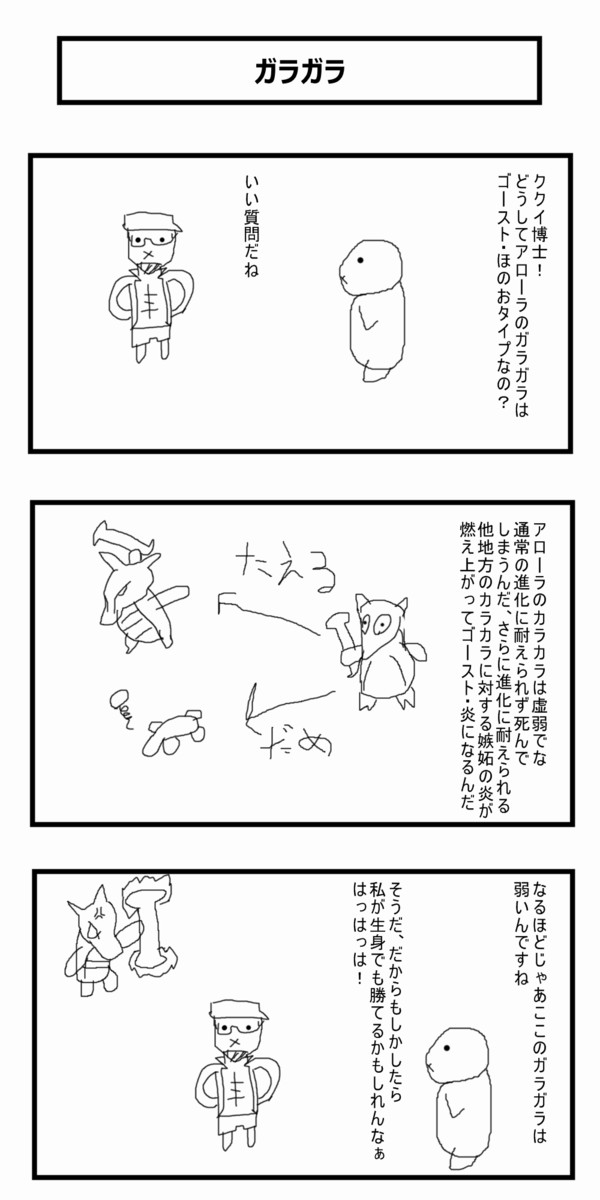 ガラガラ
ククイ博士！
どうしてアローラのガラガラは
ゴースト・ほのおタイプなの？
いい質問だね
アローラのカラカラは虚弱でな
通常の進化に耐えられず死んで
しまうんだ、さらに進化に耐えられる
他地方のカラカラに対する嫉妬の炎が
燃え上がってゴースト・炎になるんだ
たえる
だめ
なるほどじゃあここのガラガラは
弱いんですね
そうだ、だからもしかしたら
私が生身でも勝てるかもしれんなぁ
はっはっは！